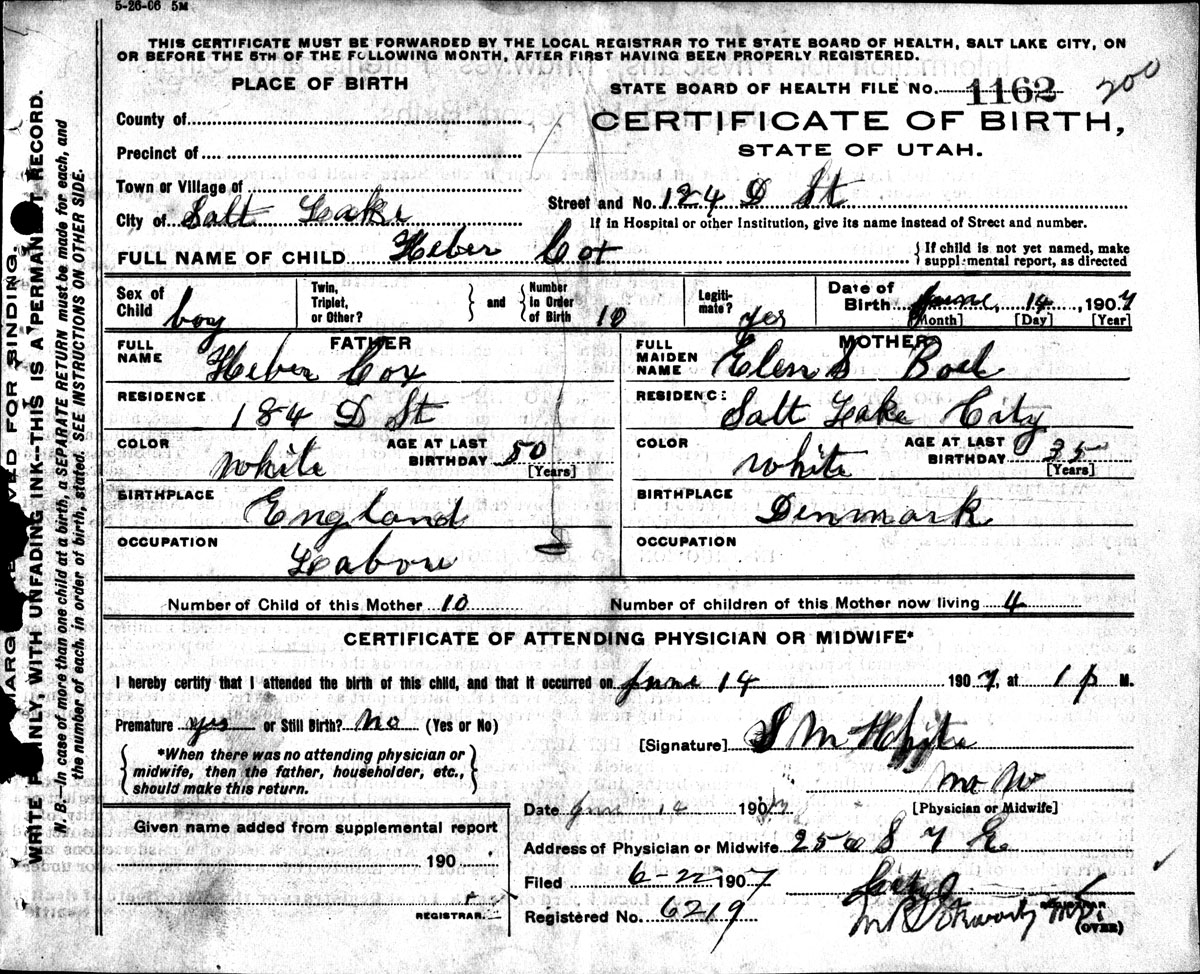 5-26-06 5M
THIS CERTIFICATE MUST BE FORWARDED BY THE LOCAL REGISTRAR TO THE STATE BOARD OF HEALTH, SALT LAKE CITY, ON
OR BEFORE THE 5TH OF THE FOLLOWING MONTH, AFTER FIRST HAVING BEEN PROPERLY REGISTERED.
PLACE OF BIRTH
STATE BOARD OF HEALTH FILE No. 1162 200
CERTIFICATE OF BIRTH,
STATE OF UTAH.
County of
Precinct of
Town or Village of
City of Salt Lake
Street and No. 124 D St
If in Hospital or other Institution, give its name instead of Street and number.
FULL NAME OF CHILD Heber Cox
{ If child is not yet named, make
supplemental report, as directed
Sex of Child boy
Twin, Triplet, or Other? } and { Number in Order of Birth 10
Legitimate? yes
Date of Birth June 14, 1907
[Month] [Day] [Year]
FATHER
FULL NAME Heber Cox
RESIDENCE 184 D St
COLOR White AGE AT LAST BIRTHDAY 50
[Years]
BIRTHPLACE England
OCCUPATION Labore
MOTHER
FULL MAIDEN NAME Elen S Boel
RESIDENCE Salt Lake City
COLOR White AGE AT LAST BIRTHDAY 35
[Years]
BIRTHPLACE Denmark
OCCUPATION
Number of Child of this Mother 10 Number of children of this Mother now living 4
CERTIFICATE OF ATTENDING PHYSICIAN OR MIDWIFE*
I hereby certify that I attended the birth of this child, and that it occurred on June 14 1907, at 1 p M.
Premature yes or Still Birth? No (Yes or No)
[Signature] S M White
{ *When there was no attending physician or
midwife, then the father, householder, etc.,
should make this return. }
[Physician or Midwife]
Date June 14 1907
Address of Physician or Midwife 250 S 7 E
Filed 6-22 1907
Registered No. 6219
REGISTRAR
(OVER)
Given name added from supplemental report
190
REGISTRAR.
MARGIN RESERVED FOR BINDING.
WRITE PLAINLY, WITH UNFADING INK--THIS IS A PERMANENT RECORD.
N. B.--In case of more than one child at a birth, a SEPARATE RETURN must be made for each, and
the number of each, in order of birth, stated. SEE INSTRUCTIONS ON OTHER SIDE.